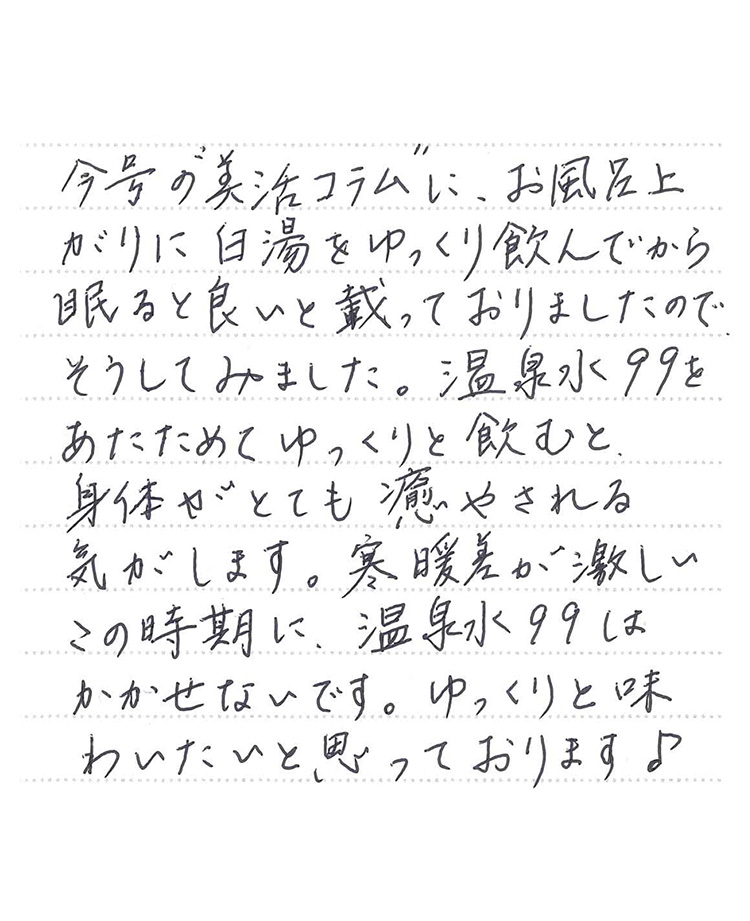 今号の"美活コラム"に、お風呂上
がりに白湯をゆっくり飲んでから
眠ると良いと載っておりましたので、
そうしてみました。温泉水99を
あたためてゆっくりと飲むと、
身体がとても癒やされる
気がします。寒暖差が激しい
この時期に、温泉水99は
かかせないです。ゆっくりと味
わいたいと思っております♪